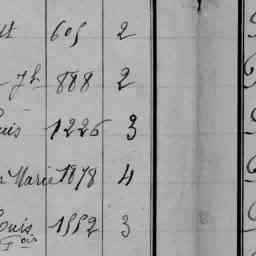 605 2
Jh 888 2
uis 1226 3
Marie 1878 4
Louis 1552 3